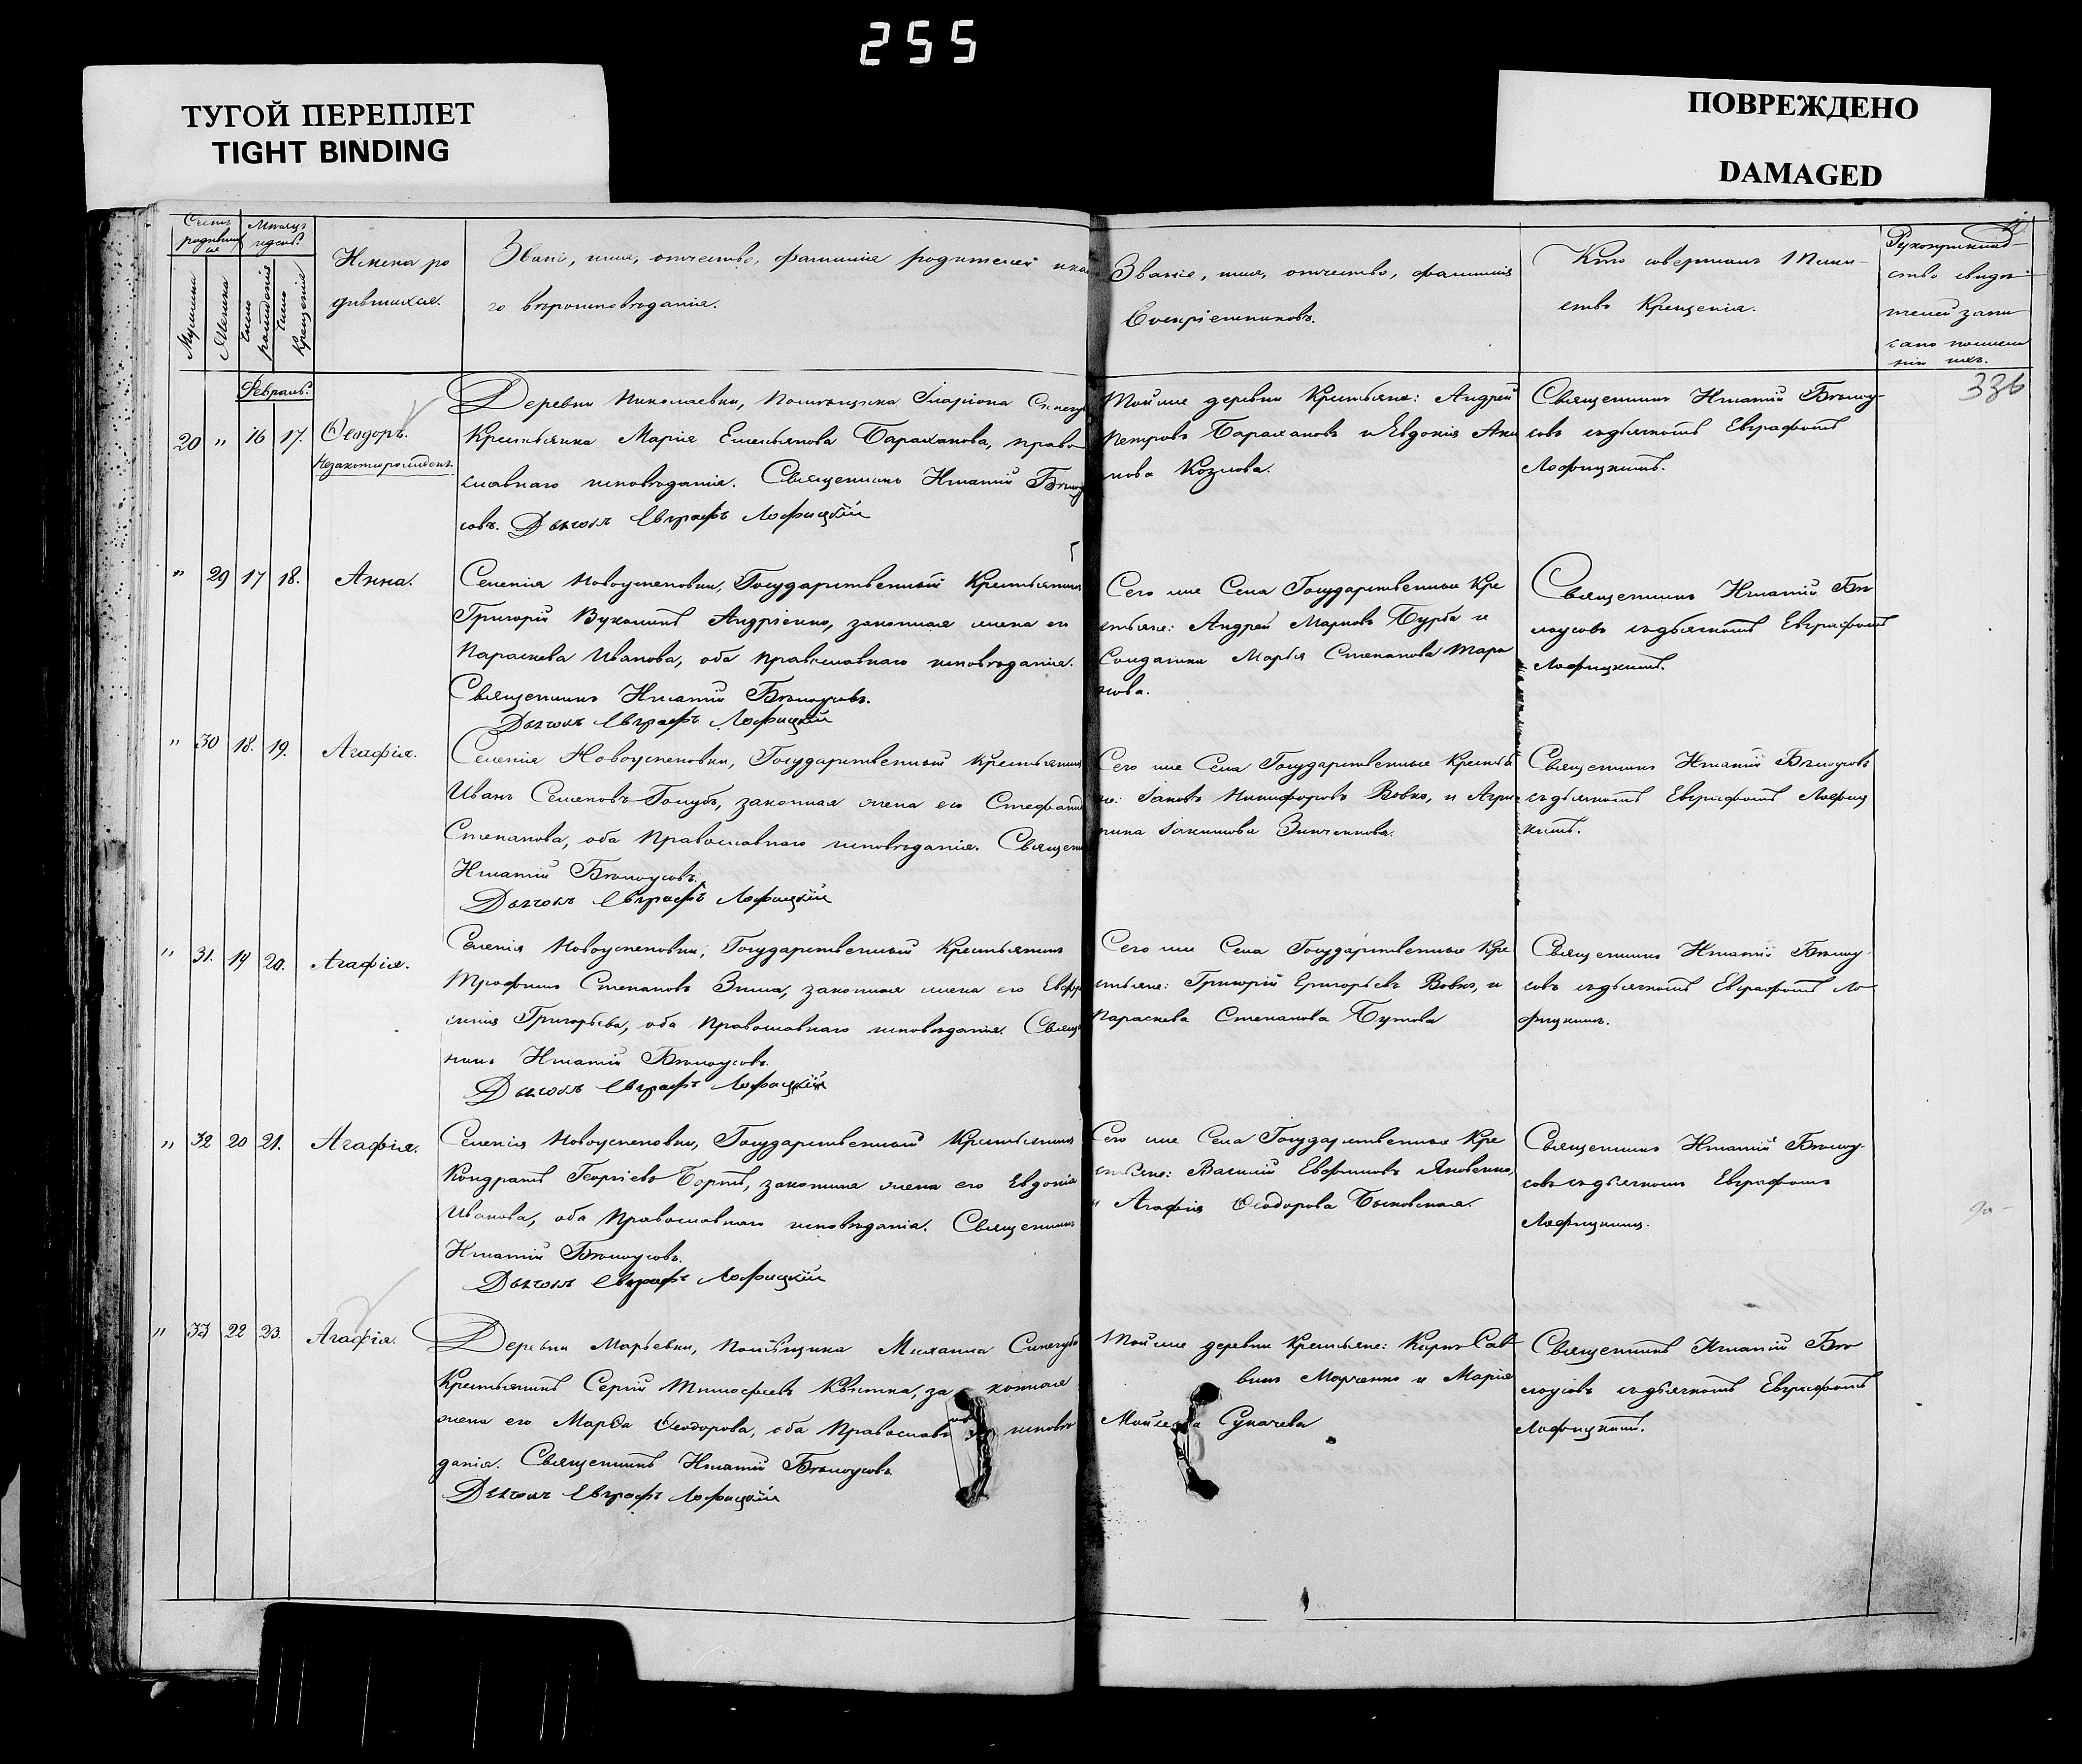 255
ТУГОЙ ПЕРЕПЛЕТ
TIGHT BINDING
ПОВРЕЖДЕНО
DAMAGED
Счетъ родившихся
Мѣсяцъ и день.
Мужска
Женска
Число рожденія
Число Крещенія
Имена ро
дившихся.
Званіе, имя, отчество, фамилія родителей и како
го вѣроисповѣданія.
Званіе, имя, отчество, фамилія
Воспріемниковъ.
Кто совершалъ Таин-
ство Крещенія.
Рукоприклад-
ство свидѣ-
телей запи
336
Февраль.
20 " 16 17.
Ѳеодоръ.
Незаконнорожденъ.
Деревни Николаевки, Помѣщика Иларіона Синегу
Крестьянка Марія Емельянова Бараханова, право
славнаго исповѣданія. Священникъ Игнатій Бѣлоу
совъ. Дьячокъ Евграфъ Лофицкій
Той же деревни Крестьяне: Андрей
Петровъ Барахановъ и Евдокія Аки
мова Козлова.
Священникъ Игнатій Бѣлоу
совъ съ дьячкомъ Евграфомъ
Лофицкимъ.
" 29 17 18.
Анна.
Селенія Новоуспеновки, Государственный Крестьянинъ
Григорій Вуколинъ Андріенко, законная жена его
Параскева Иванова, оба Православнаго исповѣданія.
Священникъ Игнатій Бѣлоусовъ.
Дьячокъ Евграфъ Лофицкій
Сего же Села Государственные Кре
стьяне: Андрей Марковъ Бурба и
Солдатка Марья Степанова Тара
нова.
Священникъ Игнатій Бѣ
лоусовъ съ дьячкомъ Евграфомъ
Лофицкимъ.
" 30 18. 19.
Агафія.
Селенія Новоуспеновки, Государственный Крестьянинъ
Иванъ Семеновъ Голубъ, законная жена его Стефанида
Степанова, оба Православнаго исповѣданія. Священ
Игнатій Бѣлоусовъ.
Дьячокъ Евграфъ Лофицкій
Сего же Села Государственные Крестья
не: Іаковъ Никифоровъ Вовкъ, и Агри
пина Іакимова Зинченкова.
Священникъ Игнатій Бѣлоусовъ
съ дьячкомъ Евграфомъ Лофиц
кимъ.
" 31. 19 20.
Агафія.
Селенія Новоуспеновки, Государственный Крестьянинъ
Трофимъ Степановъ Зима, законная жена его Евфро
синія Григорьева, оба Православнаго исповѣданія. Священ
никъ Игнатій Бѣлоусовъ.
Дьячокъ Евграфъ Лофицкій
Сего же Села Государственные Кре
стьяне: Григорій Григорьевъ Вовкъ, и
Параскева Степанова Бутова
Священникъ Игнатій Бѣлоу
совъ съ дьячкомъ Евграфомъ Ло
фицкимъ.
" 32 20 21.
Агафія.
Селенія Новоуспеновки, Государственный Крестьянинъ
Кондратъ Георгіевъ Бортъ, законная жена его Евдокія
Иванова, оба Православнаго исповѣданія. Священникъ
Игнатій Бѣлоусовъ.
Дьячокъ Евграфъ Лофицкій
Сего же Села Государственные Кре
стьяне: Василій Евфимовъ Яковенко,
и Агафія Ѳеодорова Быковская.
Священникъ Игнатій Бѣлоу
совъ съ дьячкомъ Евграфомъ
Лофицкимъ.
" 33 22 23.
Агафія.
Деревни Марьевки, Помѣщика Михаила Синегуба
Крестьянинъ Сергій Тимофеевъ Квитка, законная
жена его Марѳа Ѳеодорова, оба Православнаго исповѣ
данія. Священникъ Игнатій Бѣлоусовъ.
Дьячокъ Евграфъ Лофицкій
Той же деревни Крестьяне: Карпъ Сав
винъ Марченко и Марія
Сукачева
Священникъ Игнатій Бѣ
лоусовъ съ дьячкомъ Евграфомъ
Лофицкимъ.